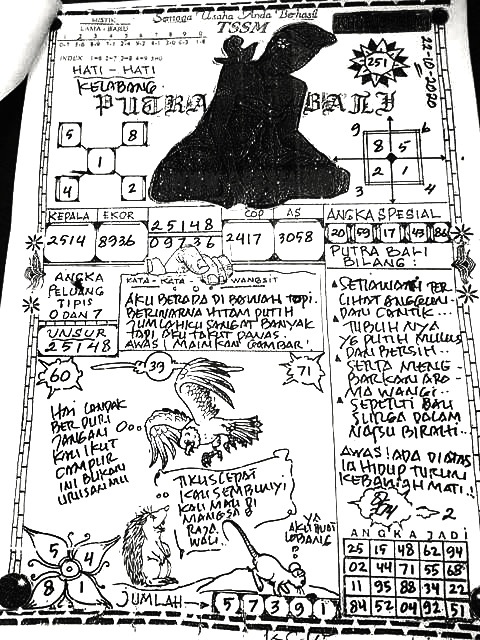 Semoga Usaha Anda Berhasil
TSSM
MISTIK
LAMA - BARU
1 2 3 4 5 6 7 8 9 0
INDEX
22-10-2020
251
HATI - HATI
KELABANG
PUTRA BALI
5 8
1
4 2
9 6
8 5
2 1
3 4
KEPALA EKOR 25148 COP AS ANGKA SPESIAL
2514 8936 09736 2417 3058 20 59 17 43 86
ANGKA
PELUANG
TIPIS
0 DAN 7
UNSUR
25148
KATA - KATA WANGSIT
AKU BERADA DI BAWAH TOPI.
BERWARNA HITAM PUTIH
JUMLAHKU SANGAT BANYAK
TAPI AKU TAKUT PANAS.
AWAS! MAINKAN GAMBAR!
PUTRA BALI
BILANG :
SETIAWATI TER
LIHAT ANGGUN
DAN CANTIK...
TUBUH NYA
YG PUTIH MULUS
DAN BERSIH...
SERTA MENG -
BARKAN ARO -
MA WANGI...
SEPERTI BAU
SURGA DALAM
NAFSU BIRAHI...
AWAS! ADA DI ATAS
IA HIDUP TURUN
KEBAWAH MATI!
60
39
71
HAI LANDAK
BERDURI
JANGAN
KAU IKUT
CAMPUR
INI BUKAN
URUSANMU
TIKUS CEPAT
KAU SEMBUNYI
KAU MAU DI
MANGSA
RAJA
WALI.
YA
AKU BUAT
LOBANG
2
5 4
8 1
JUMLAH 5 7 3 9 1
ANGKA JADI
25 15 48 62 94
02 44 71 55 68
11 95 88 34 22
84 52 04 92 51